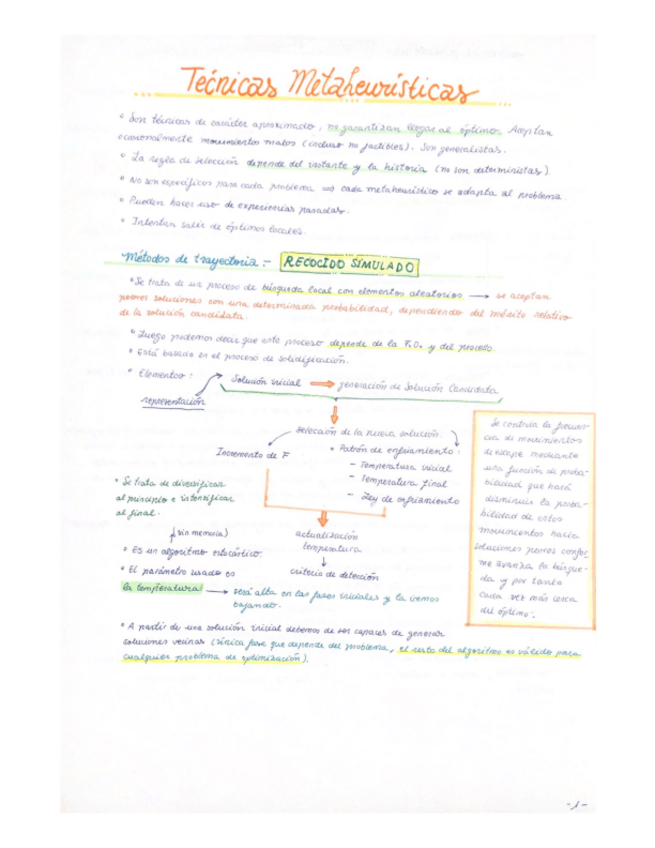 Técnicas Metaheurísticas
° Son técnicas de carácter aproximado, no garantizan llegar al óptimo. Aceptan
ocasionalmente movimientos malos (incluso no factibles). Son generalistas.
° La regla de selección depende del instante y la historia (no son deterministas).
° No son específicos para cada problema ⇒ cada metaheurístico se adapta al problema.
° Pueden hacer uso de experiencias pasadas.
° Intentan salir de óptimos locales.
Métodos de trayectoria:- RECOCIDO SIMULADO
° Se trata de un proceso de búsqueda local con elementos aleatorios → se aceptan
peores soluciones con una determinada probabilidad, dependiendo del mérito relativo
de la solución candidata.
° Luego podemos decir que este proceso depende de la F.O. y del proceso.
° Está basado en el proceso de solidificación.
° Elementos: Solución inicial ⇒ generación de Solución Candidata
representación
selección de la nueva solución.
Incremento de F
• Patrón de enfriamiento:
- Temperatura inicial
- Temperatura final
- Ley de enfriamiento
° Se trata de diversificar
al principio e intensificar
al final.
(sin memoria)
° Es un algoritmo estocástico.
° El parámetro usado es
la temperatura → será alta en las fases iniciales y la iremos
bajando.
actualización
temperatura
↓
criterio de detección
Se controla la frecuen-
cia de movimientos
de escape mediante
una función de proba-
bilidad que hará
disminuir la proba-
bilidad de estos
movimientos hacia
soluciones peores confor-
me avanza la búsque-
da y por tanto
cada vez más cerca
del óptimo.
° A partir de una solución inicial debemos de ser capaces de generar
soluciones vecinas (única fase que depende del problema, el resto del algoritmo es válido para
cualquier problema de optimización).
-1-